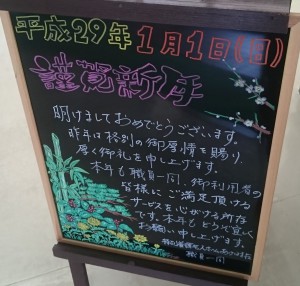 平成29年1月1日(日)
謹賀新年
明けましておめでとうございます。
昨年は格別の御厚情を賜り、
厚く御礼を申し上げます。
本年も職員一同、御利用者の
皆様にご満足頂ける
サービスを心がける所存
です。本年もどうぞ宜しく
お願い申し上げます。
職員一同